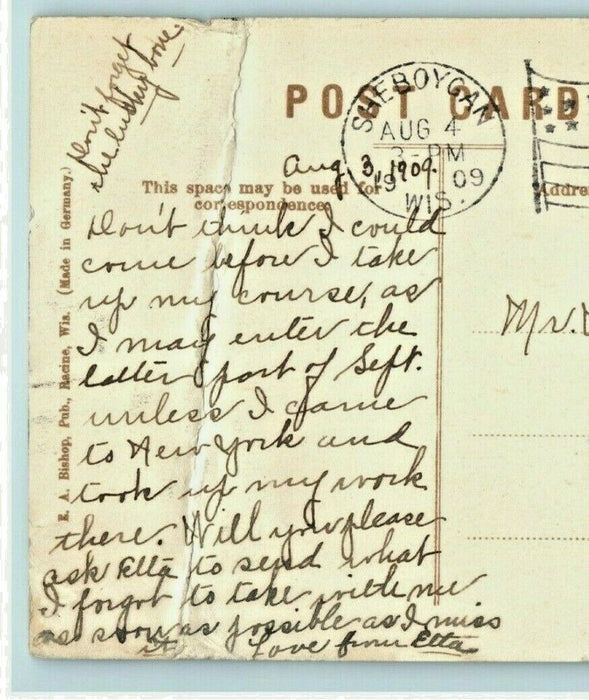 Don't forget
the lucky bone.
POST CARD
SHEBOYGAN
AUG 4
3-PM
1909
WIS.
Aug. 3, 1909.
This space may be used for
correspondence.
Addre
E. A. Bishop, Pub., Racine, Wis. (Made in Germany.)
Don't think I could
come before I take
up my course, as
I may enter the
latter part of Sept.
unless I came
to New York and
took up my work
there. Will you please
ask Etta to send what
I forgot to take with me
as soon as possible as I miss
it Love from Etta
Mr.